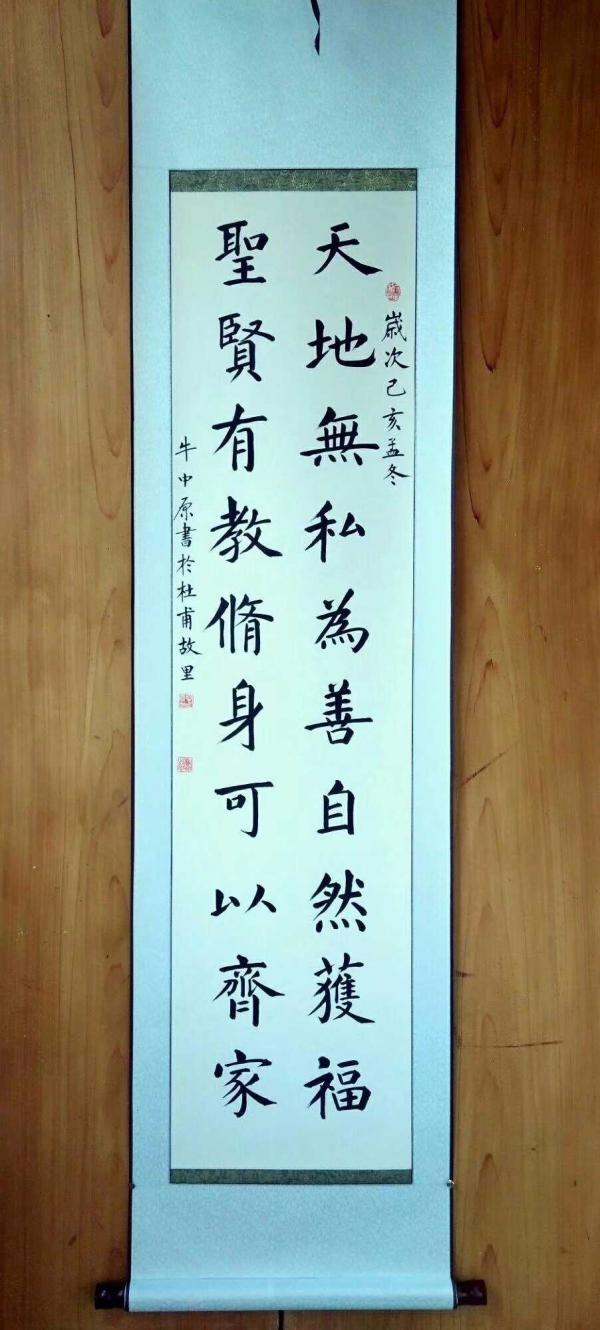 歲次己亥孟冬
天地無私為善自然獲福
聖賢有教脩身可以齊家
牛中原書於杜甫故里